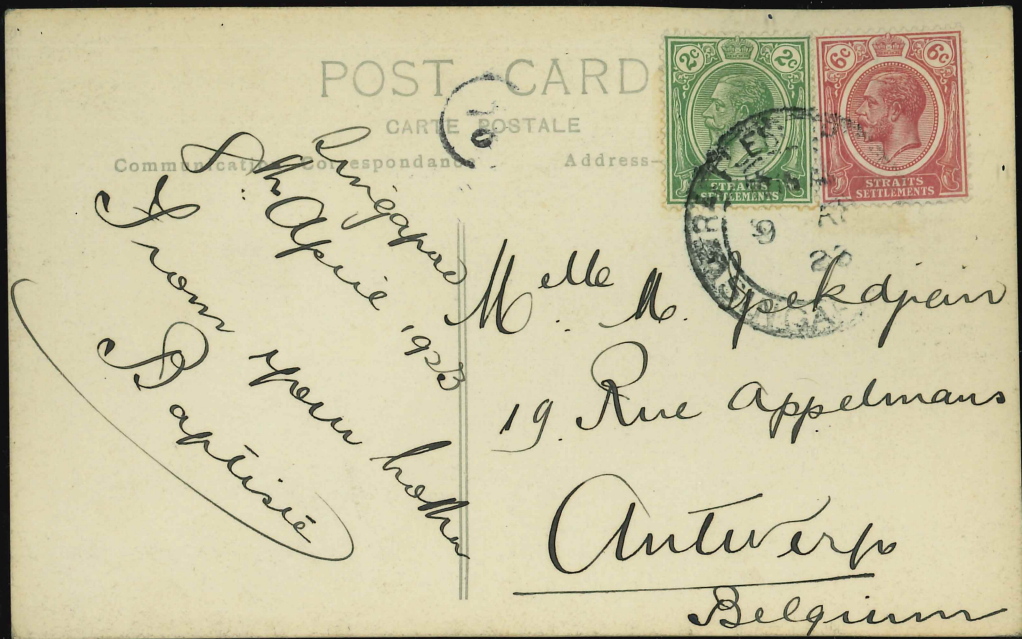 POST CARD
CARTE POSTALE
Communication Correspondance
Address-
2c 2c
STRAITS
SETTLEMENTS
6c 6c
STRAITS
SETTLEMENTS
9 AP
Singapore
8th April 1923
From your brother
Baptiste
Melle M. Ipekdjian
19 Rue Appelmans
Antwerp
Belgium